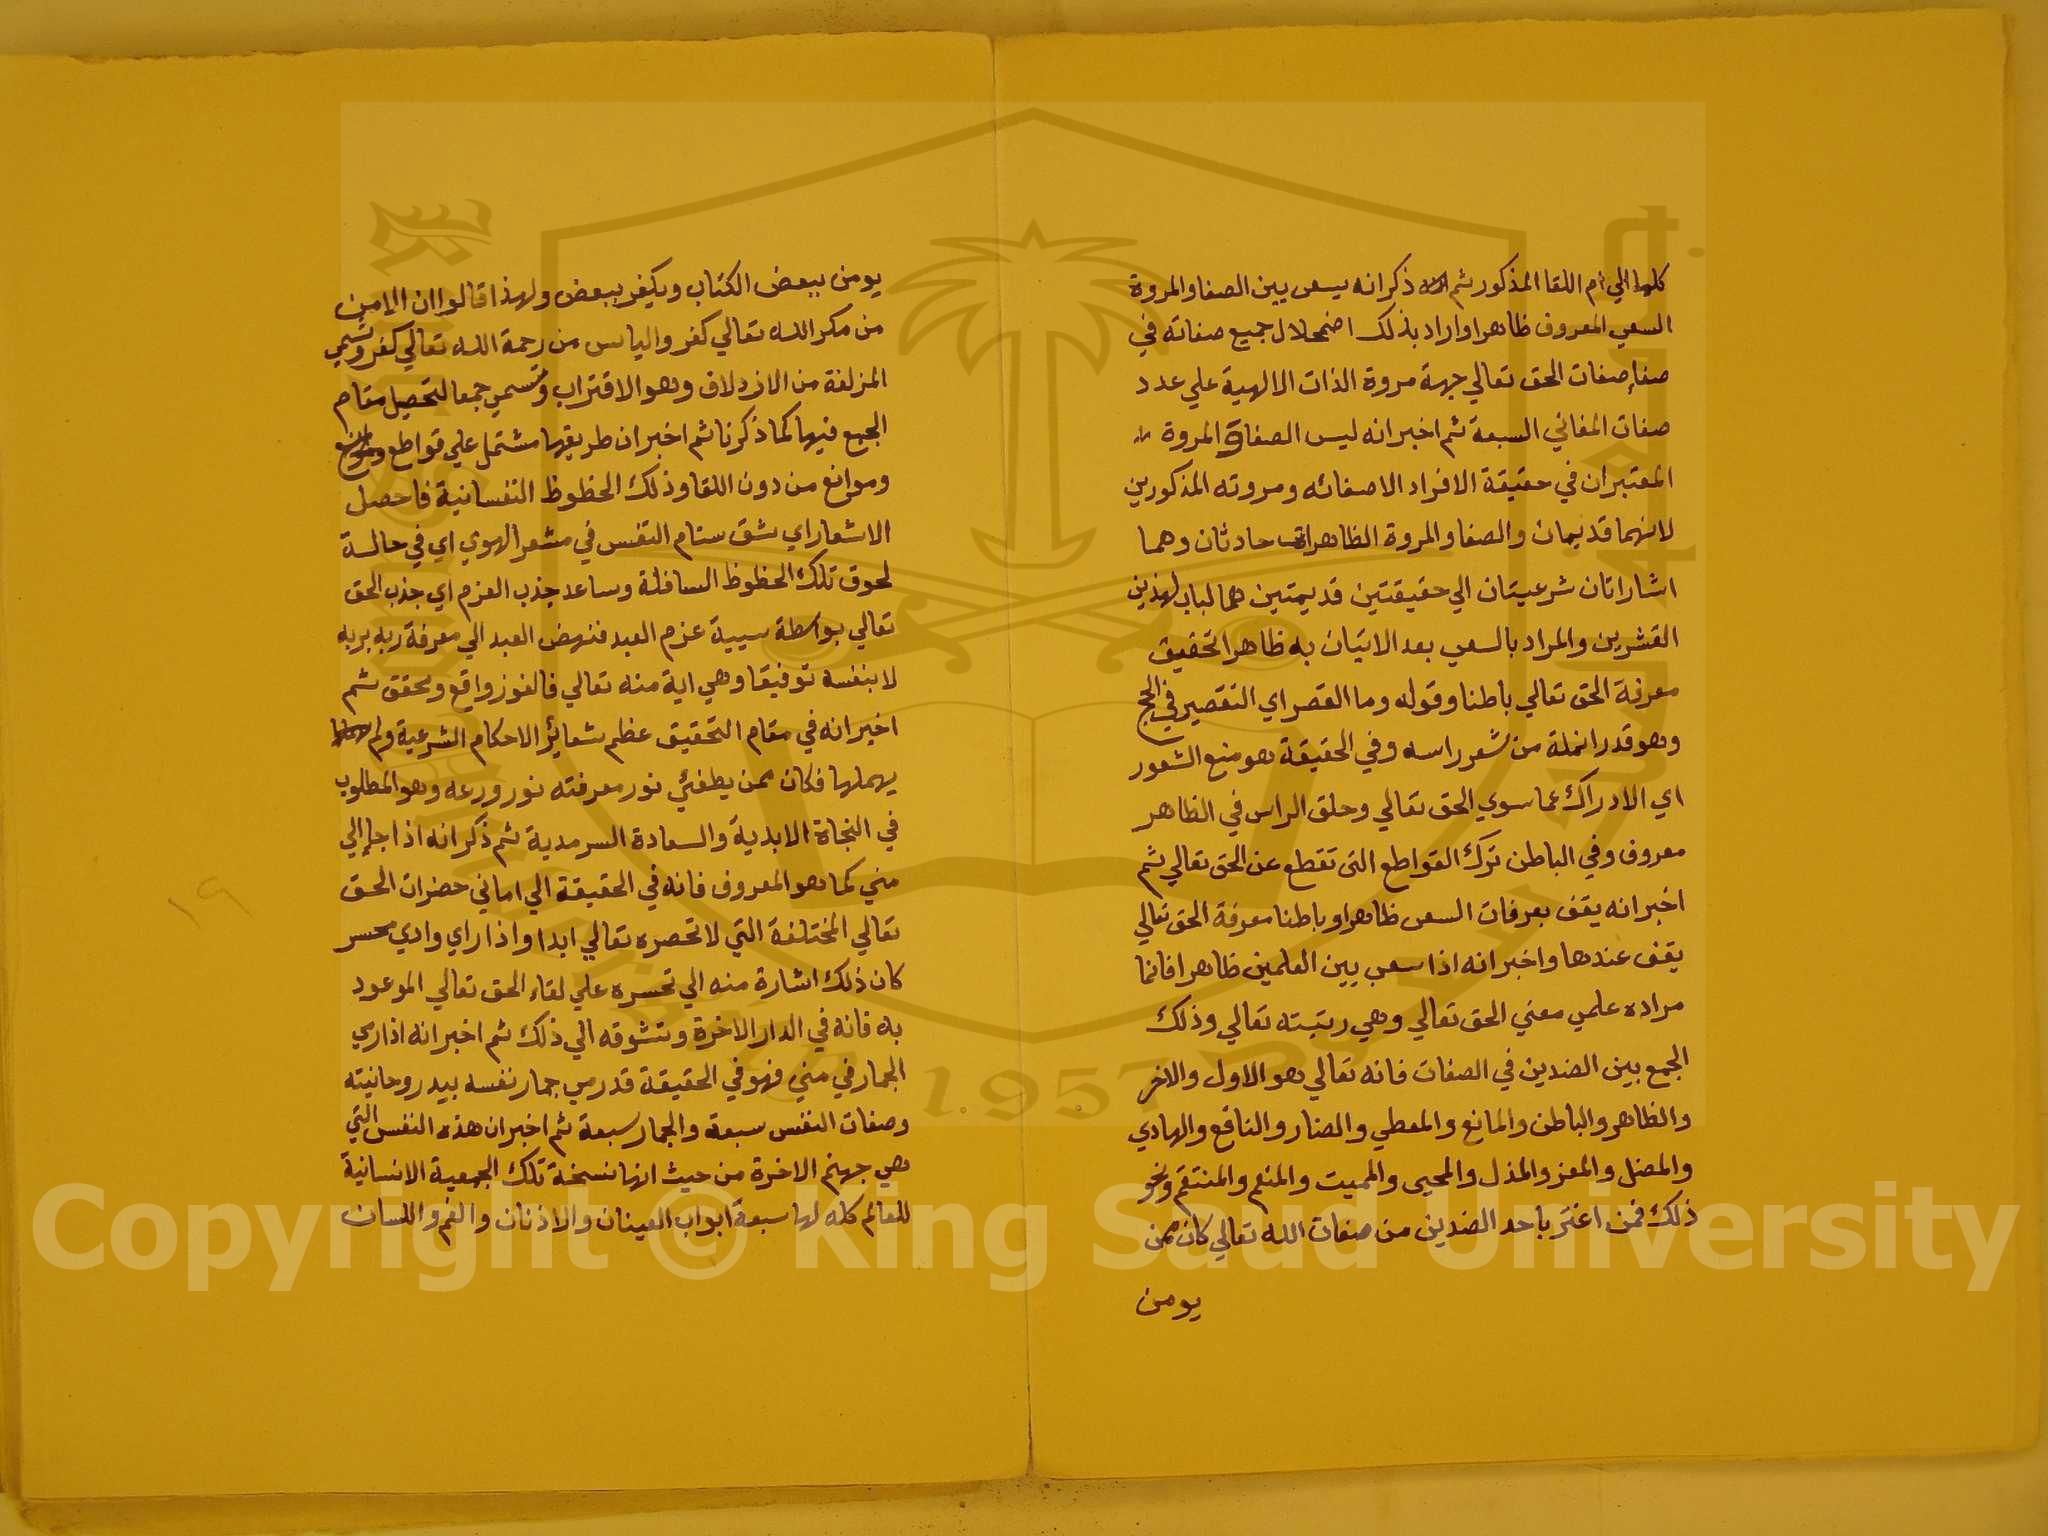 كلها الي ام اللقا المذكور ثم ذكر انه يسعي بين الصفا والمروة
السعي المعروف ظاهرا واراد بذلك اضمحلال جميع صفاته في
صفا صفات الحق تعالي جهة مروة الذات الالهية علي عدد
صفات المعاني السبعة ثم اخبر انه ليس الصفا والمروة
المعتبران في حقيقة الافراد الا صفائه ومروته المذكورين
لانهما قديمان والصفا والمروة الظاهران حادثان وهما
اشاراتان شرعيتان الي حقيقتين قديمتين هما لباب لهذين
القشرين والمراد بالسعي بعد الاتيان به ظاهرا تحقيق
معرفة الحق تعالي باطنا وقوله وما القصر اي التقصير في الحج
وهو قدر انملة من شعر راسه وفي الحقيقة هو منع الشعور
اي الادراك عما سوي الحق تعالي وحلق الراس في الظاهر
معروف وفي الباطن ترك القواطع التي تقطع عن الحق تعالي ثم
اخبر انه يقف بعرفات السعي ظاهرا وباطنا معرفة الحق تعالي
يقف عندها واخبر انه اذا سعي بين العلمين ظاهرا فانما
مراده علمي معني الحق تعالي وهي ربتيته تعالي وذلك
الجمع بين الضدين في الصفات فانه تعالي هو الاول والاخر
والظاهر والباطن والمانع والمعطي والضار والنافع والهادي
والمضل والمعز والمذل والمحيى والمميت والمنعم والمنتقم ونحو
ذلك فمن اغتر باحد الضدين من صفات الله تعالي كان ممن
يومن
يومن ببعض الكتاب ويكفر ببعض ولهذا قالوا ان الامن
من مكر الله تعالي كفر والياس من رحمة الله تعالي كفر وتسمي
المزلفة من الازدلاف وهو الاقتراب وتسمي جمعا لتحصيل مقام
الجمع فيها كما ذكرنا ثم اخبر ان طريقها مشتمل علي قواطع
وموانع من دون اللقا وذلك الحظوظ النفسانية فاحصل
الاشعار اي شق سنام النفس في مشعر الهوي اي في حالة
لحوق تلك الحظوظ السافلة وساعد جذب العزم اي جذب الحق
تعالي بواسطة سببية عزم العبد فنهض العبد الي معرفة ربه بربه
لا بنفسه توفيقا وهي اية منه تعالي فالفوز واقع ومحقق ثم
اخبر انه في مقام التحقيق عظم شعائر الاحكام الشرعية ولم
يهملها فكان ممن يطفئي نور معرفته نور ورعه وهو المطلوب
في النجاة الابدية والسعادة السرمدية ثم ذكر انه اذا جا الي
مني كما هو المعروف فانه في الحقيقة الي اماني حضرات الحق
تعالي المختلفة التي لا تحصره تعالي ابدا واذا راي وادي محسر
كان ذلك اشارة منه الي تحسره علي لقاء الحق تعالي الموعود
به فانه في الدار الاخرة وتشوقه الي ذلك ثم اخبر انه اذا رمي
الجمار في مني فهو في الحقيقة قد رمي جمار نفسه بيد روحانيته
وصفات النفس سبعة والجمار سبعة ثم اخبر ان هذه النفس التي
هي جهنم الاخرة من حيث انها نسخة تلك الجمعية الانسانية
للعالم كله لها سبعة ابواب العينان والاذنان والفم واللسان
١٩
Copyright © King Saud University
1957